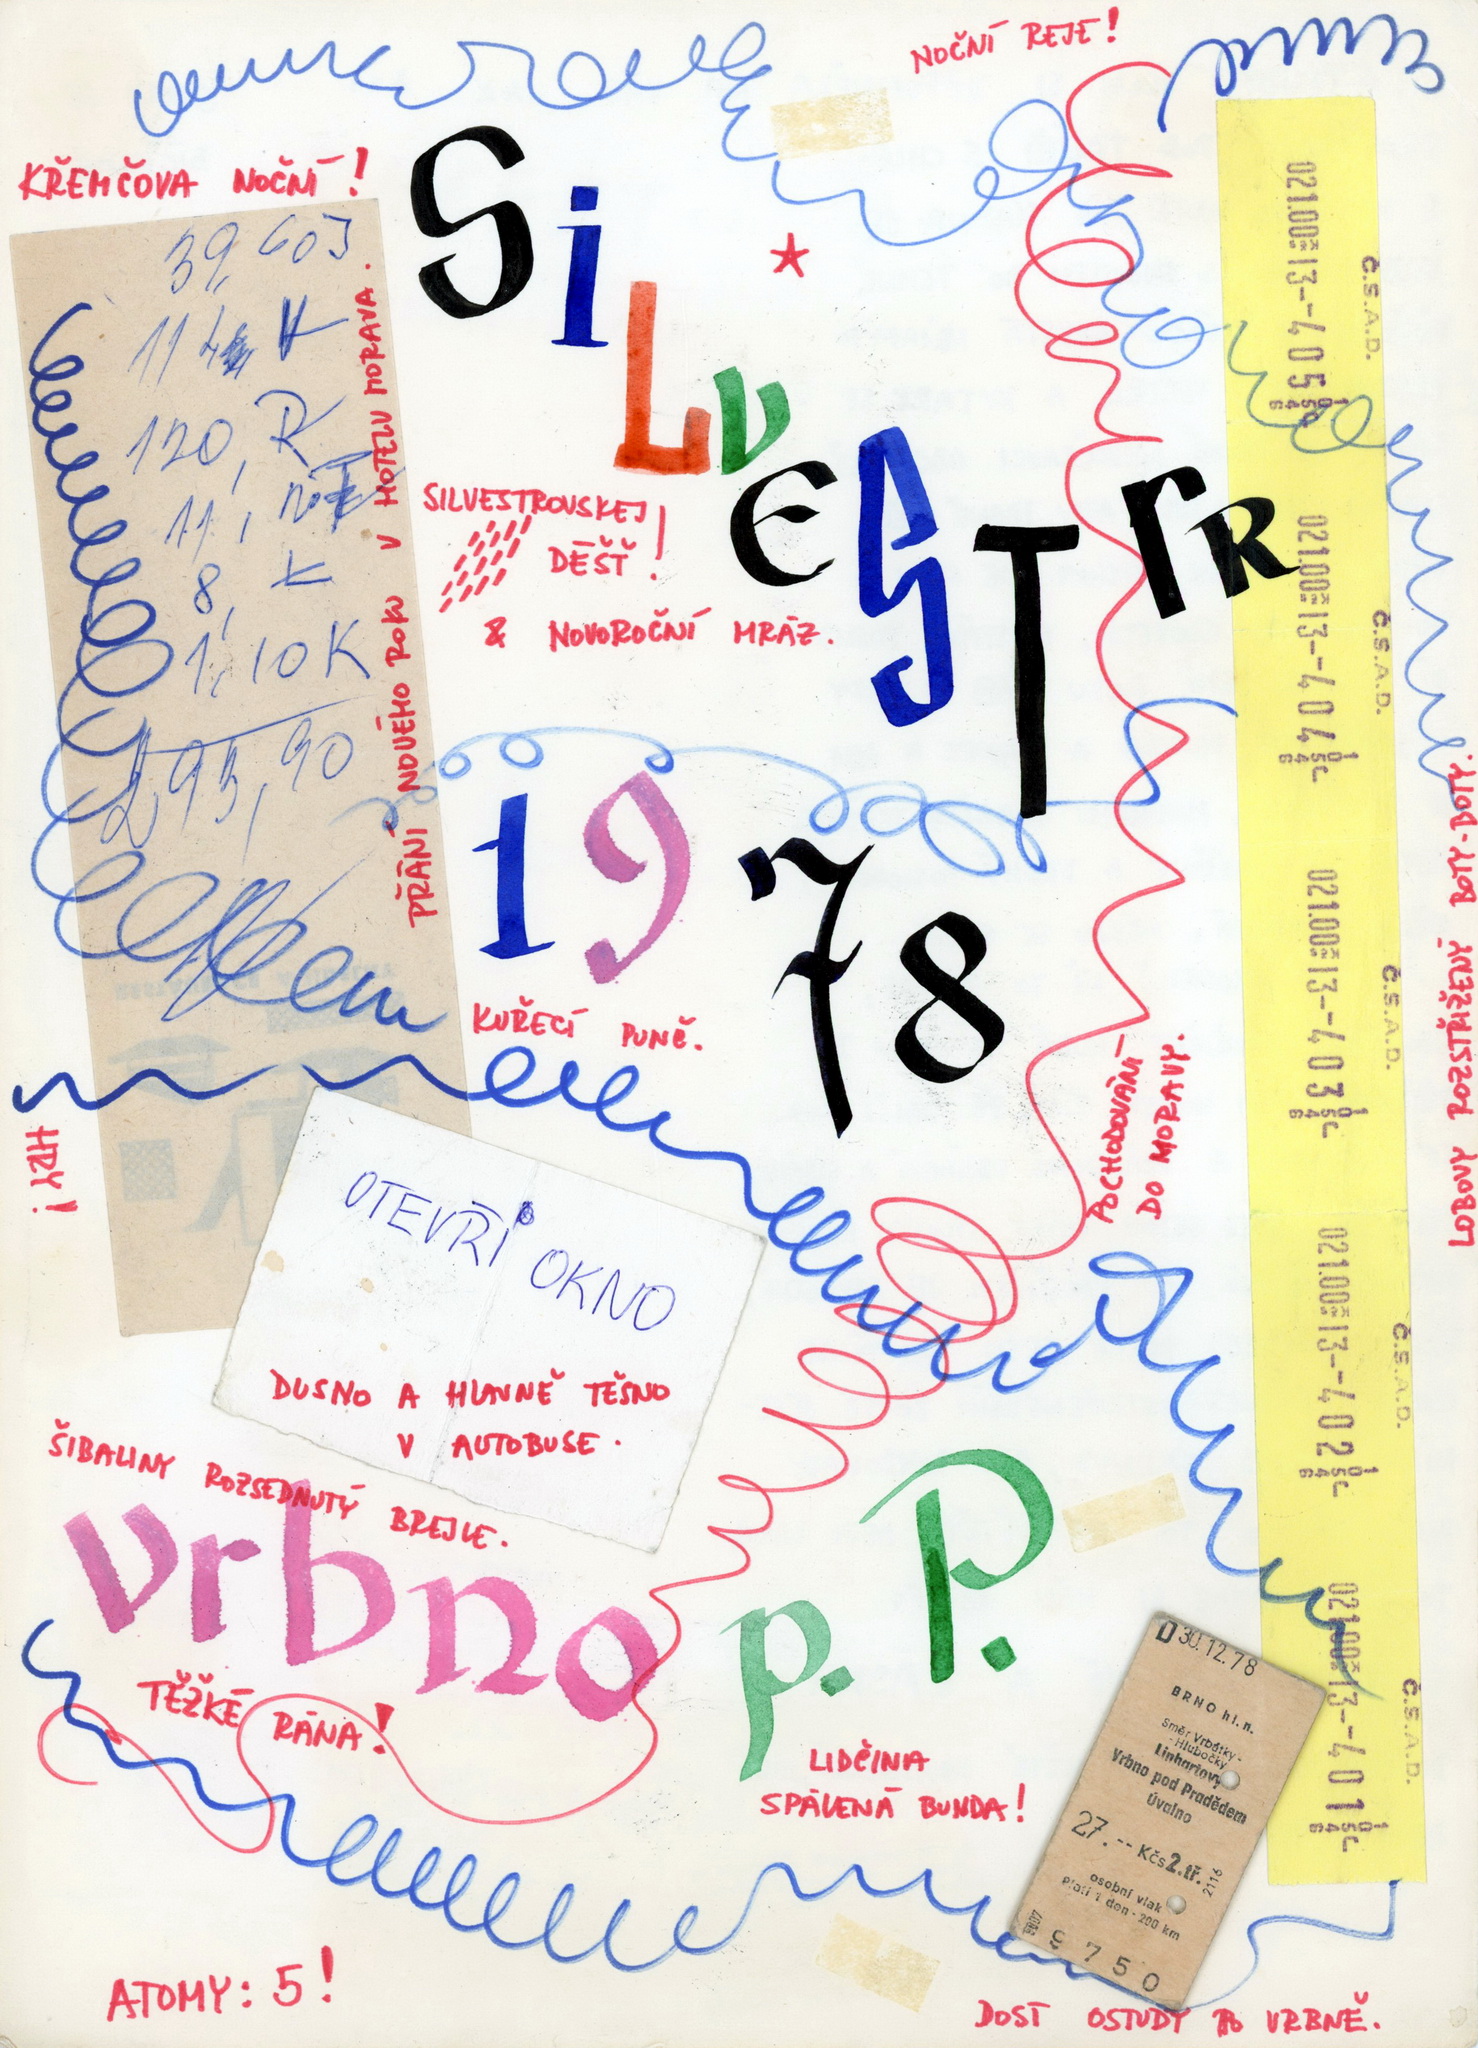 NOČNÍ REJE!
KŘEMČOVA NOČNÍ!
SiLvESTrR
39,60J
114, K
120, R
11,
8, K
1,10K
295,90
PŘÁNÍ NOVÉHO ROKU V HOTELU MORAVA.
SILVESTROVSKEJ
DÉŠŤ!
& NOVOROČNÍ MRÁZ.
1978
KUŘECÍ PUNĚ.
HRY!
POCHODOVÁNÍ
DO MORAVY.
LOBOVY ROZSTŘIŽENÝ BOTY-DOTY.
OTEVŘI OKNO
DUSNO A HLAVNĚ TĚSNO
V AUTOBUSE.
ŠIBALINY ROZSEDNUTÝ BREJLE.
vrbno p.P.
TĚŽKÉ RÁNA!
LIDČINA
SPÁLENÁ BUNDA!
ATOMY: 5!
DOST OSTUDY PO VRBNĚ.
Č.S.A.D.
021.00 13--405
Č.S.A.D.
021.00 13--404
Č.S.A.D.
021.00 13--403
Č.S.A.D.
021.00 13--402
Č.S.A.D.
021.00 13--401
D 30.12.78
BRNO hl.n.
Směr Vrbátky-
-Hlubočky
Linhartovy
Vrbno pod Pradědem
Úvalno
27.-- Kčs 2.tř.
2116
osobní vlak
Platí 1 den - 200 km
9750